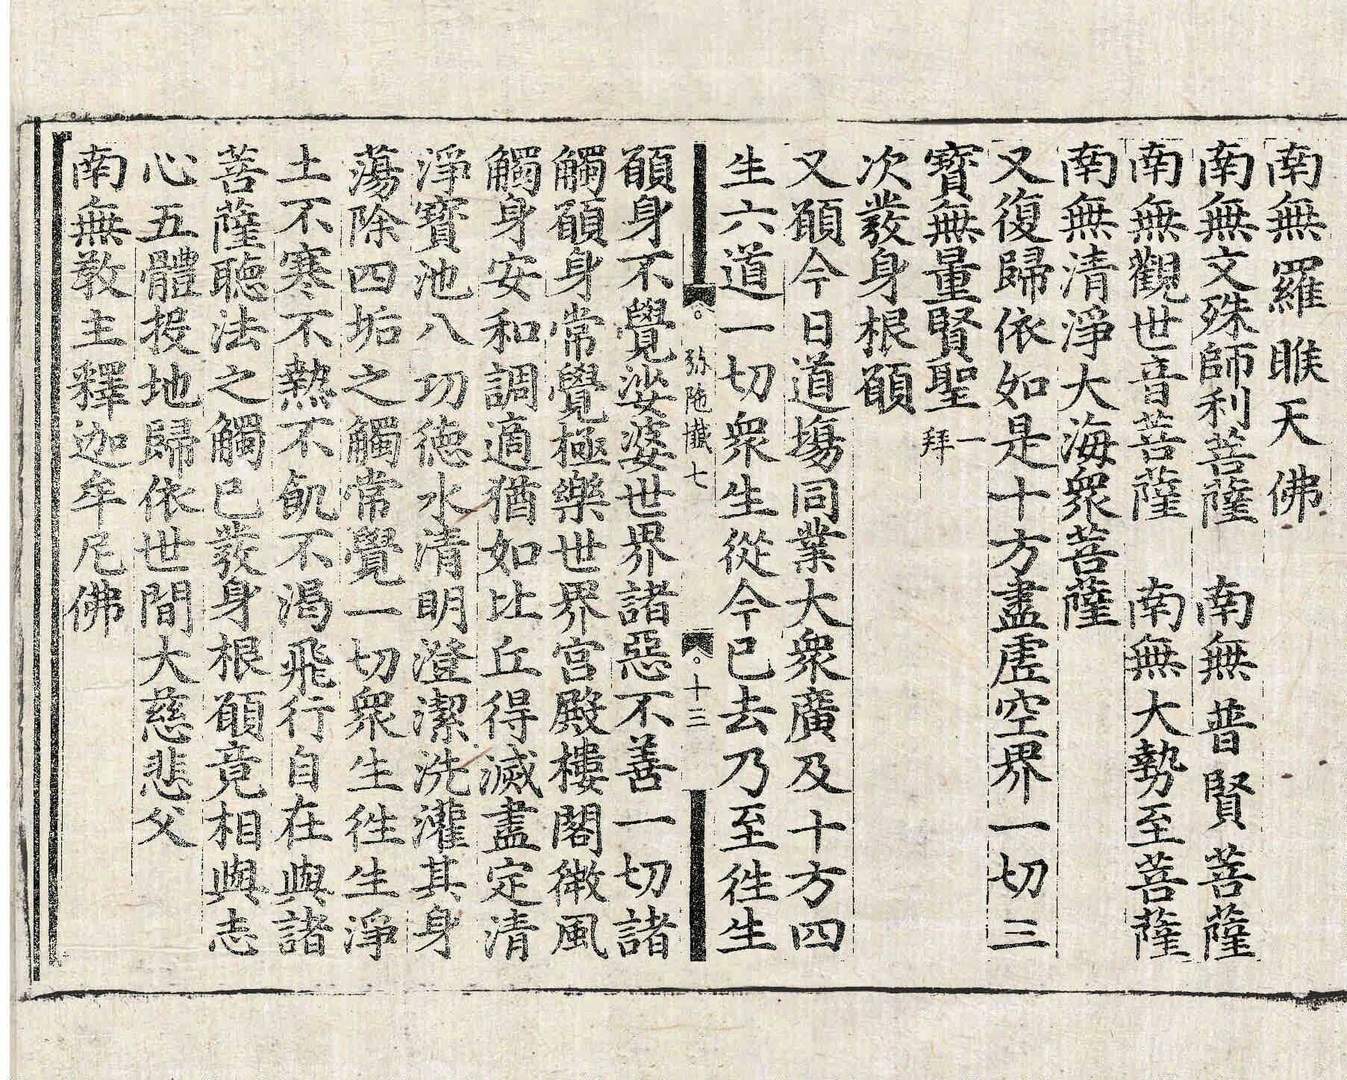 南無羅睺天佛
南無文殊師利菩薩　南無普賢菩薩
南無觀世音菩薩　南無大勢至菩薩
南無清淨大海衆菩薩
又復歸依如是十方盡虛空界一切三
寶無量賢聖一拜
次發身根願
又願今日道場同業大衆廣及十方四
生六道一切衆生從今已去乃至徃生
弥陁懴七　十三
願身不覺娑婆世界諸惡不善一切諸
觸願身常覺極樂世界宮殿樓閣微風
觸身安和調適猶如比丘得滅盡定清
淨寶池八功德水清明澄潔洗灌其身
蕩除四垢之觸常覺一切衆生徃生淨
土不寒不熱不飢不渴飛行自在與諸
菩薩聽法之觸已發身根願竟相與志
心五體投地歸依世間大慈悲父
南無敎主釋迦牟尼佛